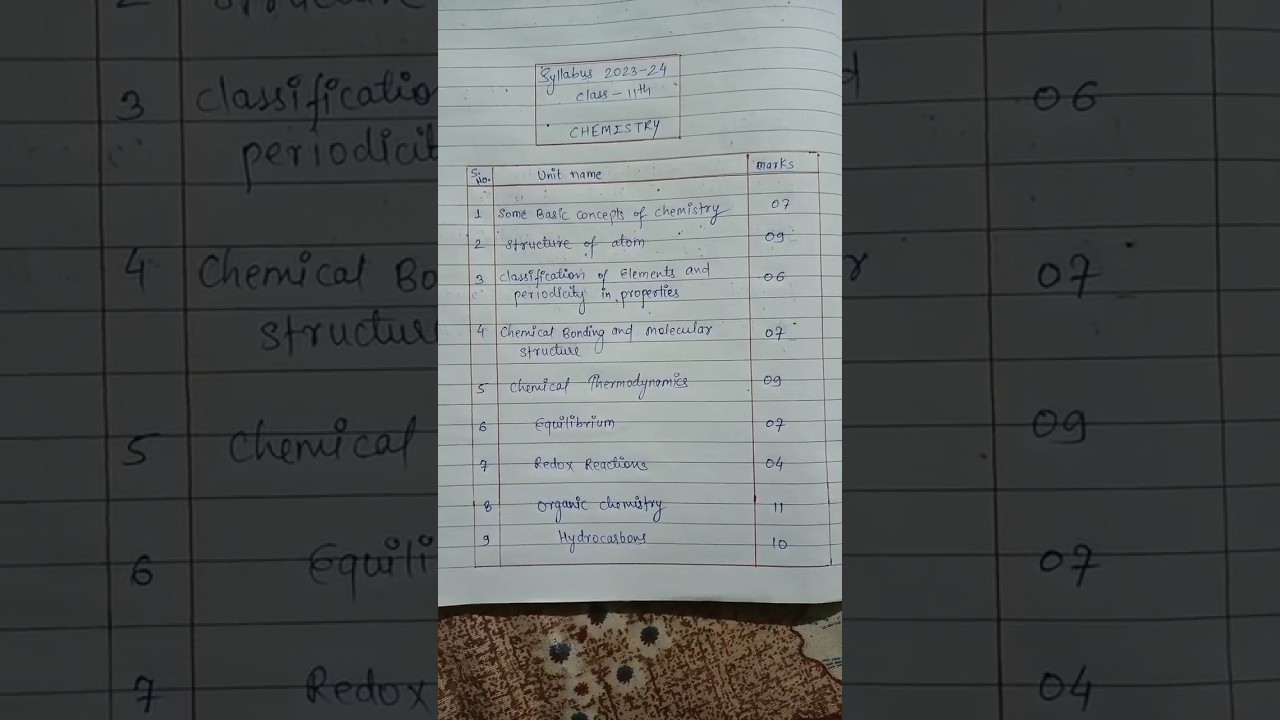 Syllabus 2023-24
Class - 11th
CHEMISTRY
S. No. Unit name marks
1 Some Basic concepts of chemistry 07
2 structure of atom 09
3 classification of Elements and 06
periodicity in properties
4 Chemical Bonding and molecular 07
structure
5 Chemical Thermodynamics 09
6 Equilibrium 07
7 Redox Reactions 04
8 organic chemistry 11
9 Hydrocarbons 10